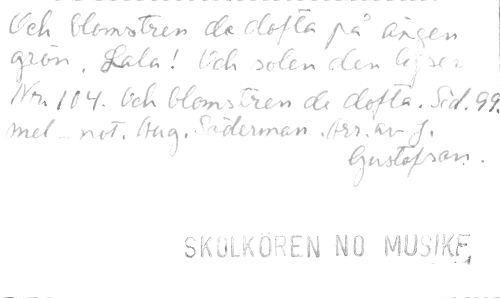 Och blomstren de dofta på ängen
grön, Lala! Och solen den lyser
Nr. 104. Och blomstren de dofta. Sid. 99.
mel_not. Aug. Söderman. Arr. av J.
Gustafson.
SKOLKÖREN NO MUSIKF.